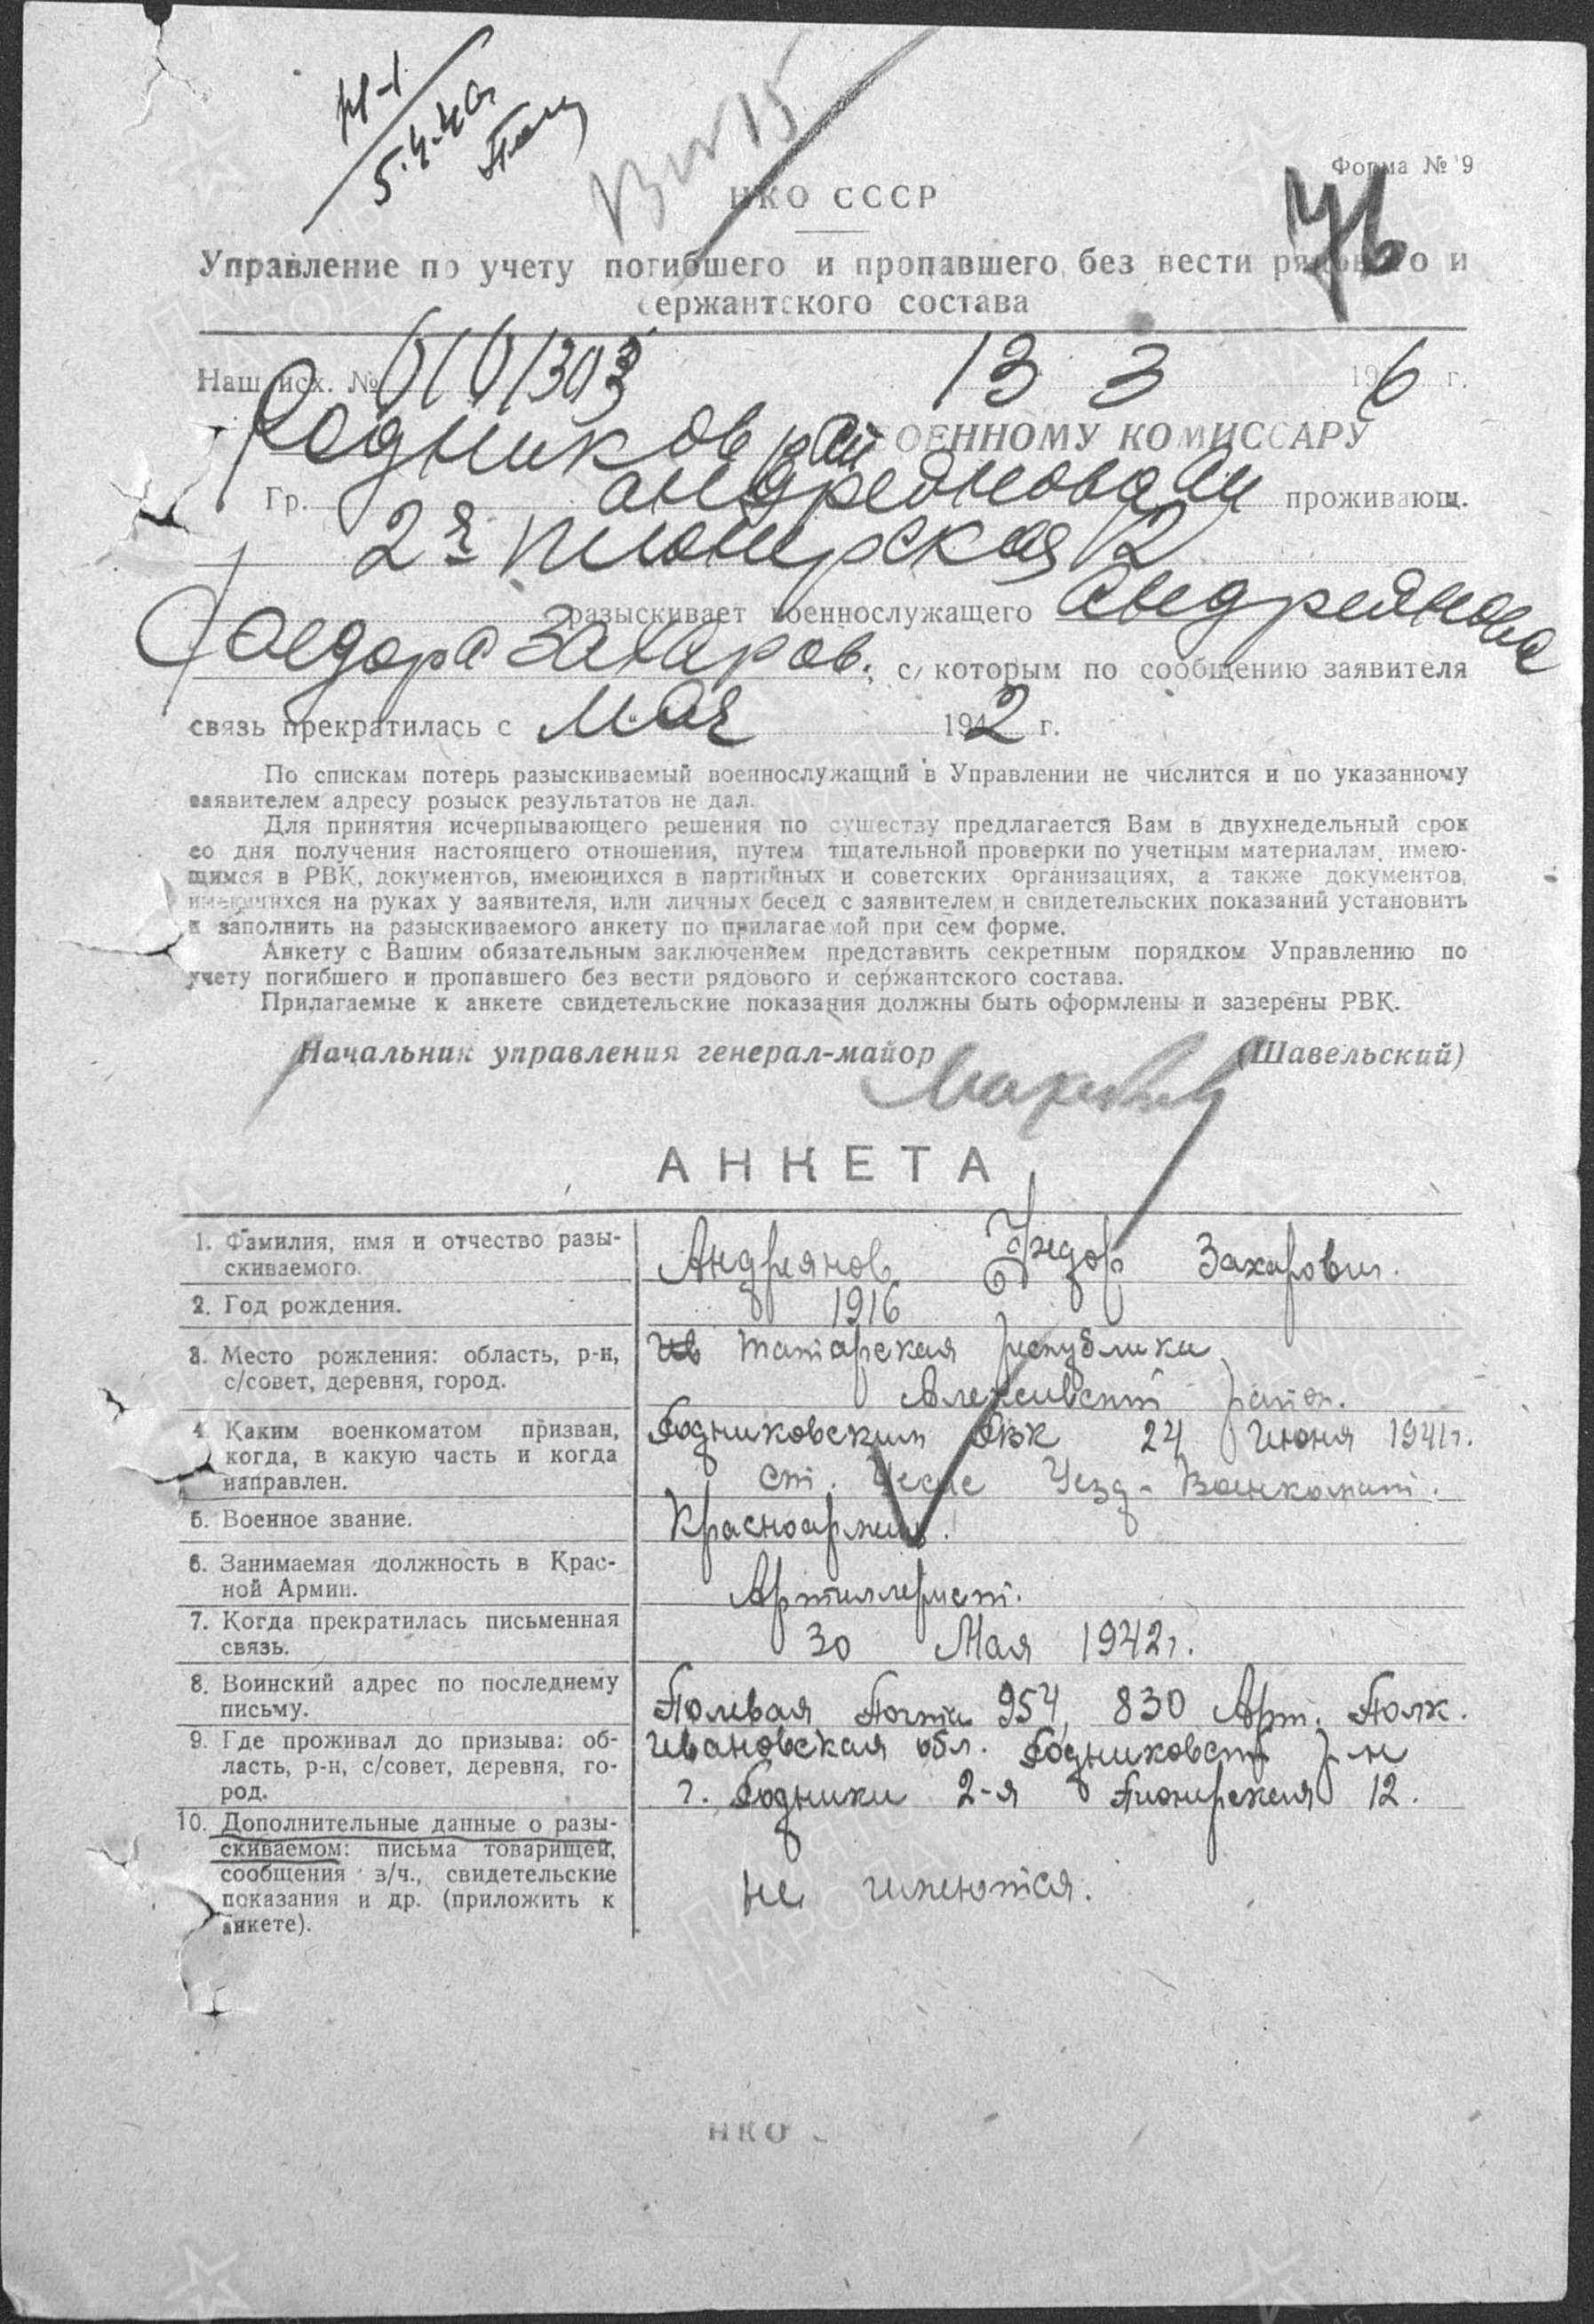 Форма № 9
76
НКО СССР
Управление по учету погибшего и пропавшего без вести рядового и
сержантского состава
Наш исх. № 13 3 1946 г.
Родников рай ВОЕННОМУ КОМИССАРУ
Гр. Андреянова проживающ.
2я Пионерская 12
разыскивает военнослужащего Андреянова
Федора Захаров., с которым по сообщению заявителя
связь прекратилась с мая 1942 г.
По спискам потерь разыскиваемый военнослужащий в Управлении не числится и по указанному
заявителем адресу розыск результатов не дал.
Для принятия исчерпывающего решения по существу предлагается Вам в двухнедельный срок
со дня получения настоящего отношения, путем тщательной проверки по учетным материалам, имею-
щимся в РВК, документов, имеющихся в партийных и советских организациях, а также документов,
имеющихся на руках у заявителя, или личных бесед с заявителем и свидетельских показаний установить
и заполнить на разыскиваемого анкету по прилагаемой при сем форме.
Анкету с Вашим обязательным заключением представить секретным порядком Управлению по
учету погибшего и пропавшего без вести рядового и сержантского состава.
Прилагаемые к анкете свидетельские показания должны быть оформлены и заверены РВК.
Начальник управления генерал-майор (Шавельский)
АНКЕТА
1. Фамилия, имя и отчество разы-
скиваемого.
Андреянов Федор Захарович.
2. Год рождения.
1916
3. Место рождения: область, р-н,
с/совет, деревня, город.
Татарская республика
район.
4. Каким военкоматом призван,
когда, в какую часть и когда
направлен.
Родниковским РВК 24 Июня 1941г.
ст. Уезд-Военкомат.
5. Военное звание.
Красноармеец.
6. Занимаемая должность в Крас-
ной Армии.
Артиллерист.
7. Когда прекратилась письменная
связь.
30 Мая 1942г.
8. Воинский адрес по последнему
письму.
Полевая Почта 954, 830 Арт. Полк.
9. Где проживал до призыва: об-
ласть, р-н, с/совет, деревня, го-
род.
Ивановская обл. Родниковский р-н
г. Родники 2-я Пионерская 12.
10. Дополнительные данные о разы-
скиваемом: письма товарищей,
сообщения з/ч., свидетельские
показания и др. (приложить к
анкете).
не имеются.
НКО